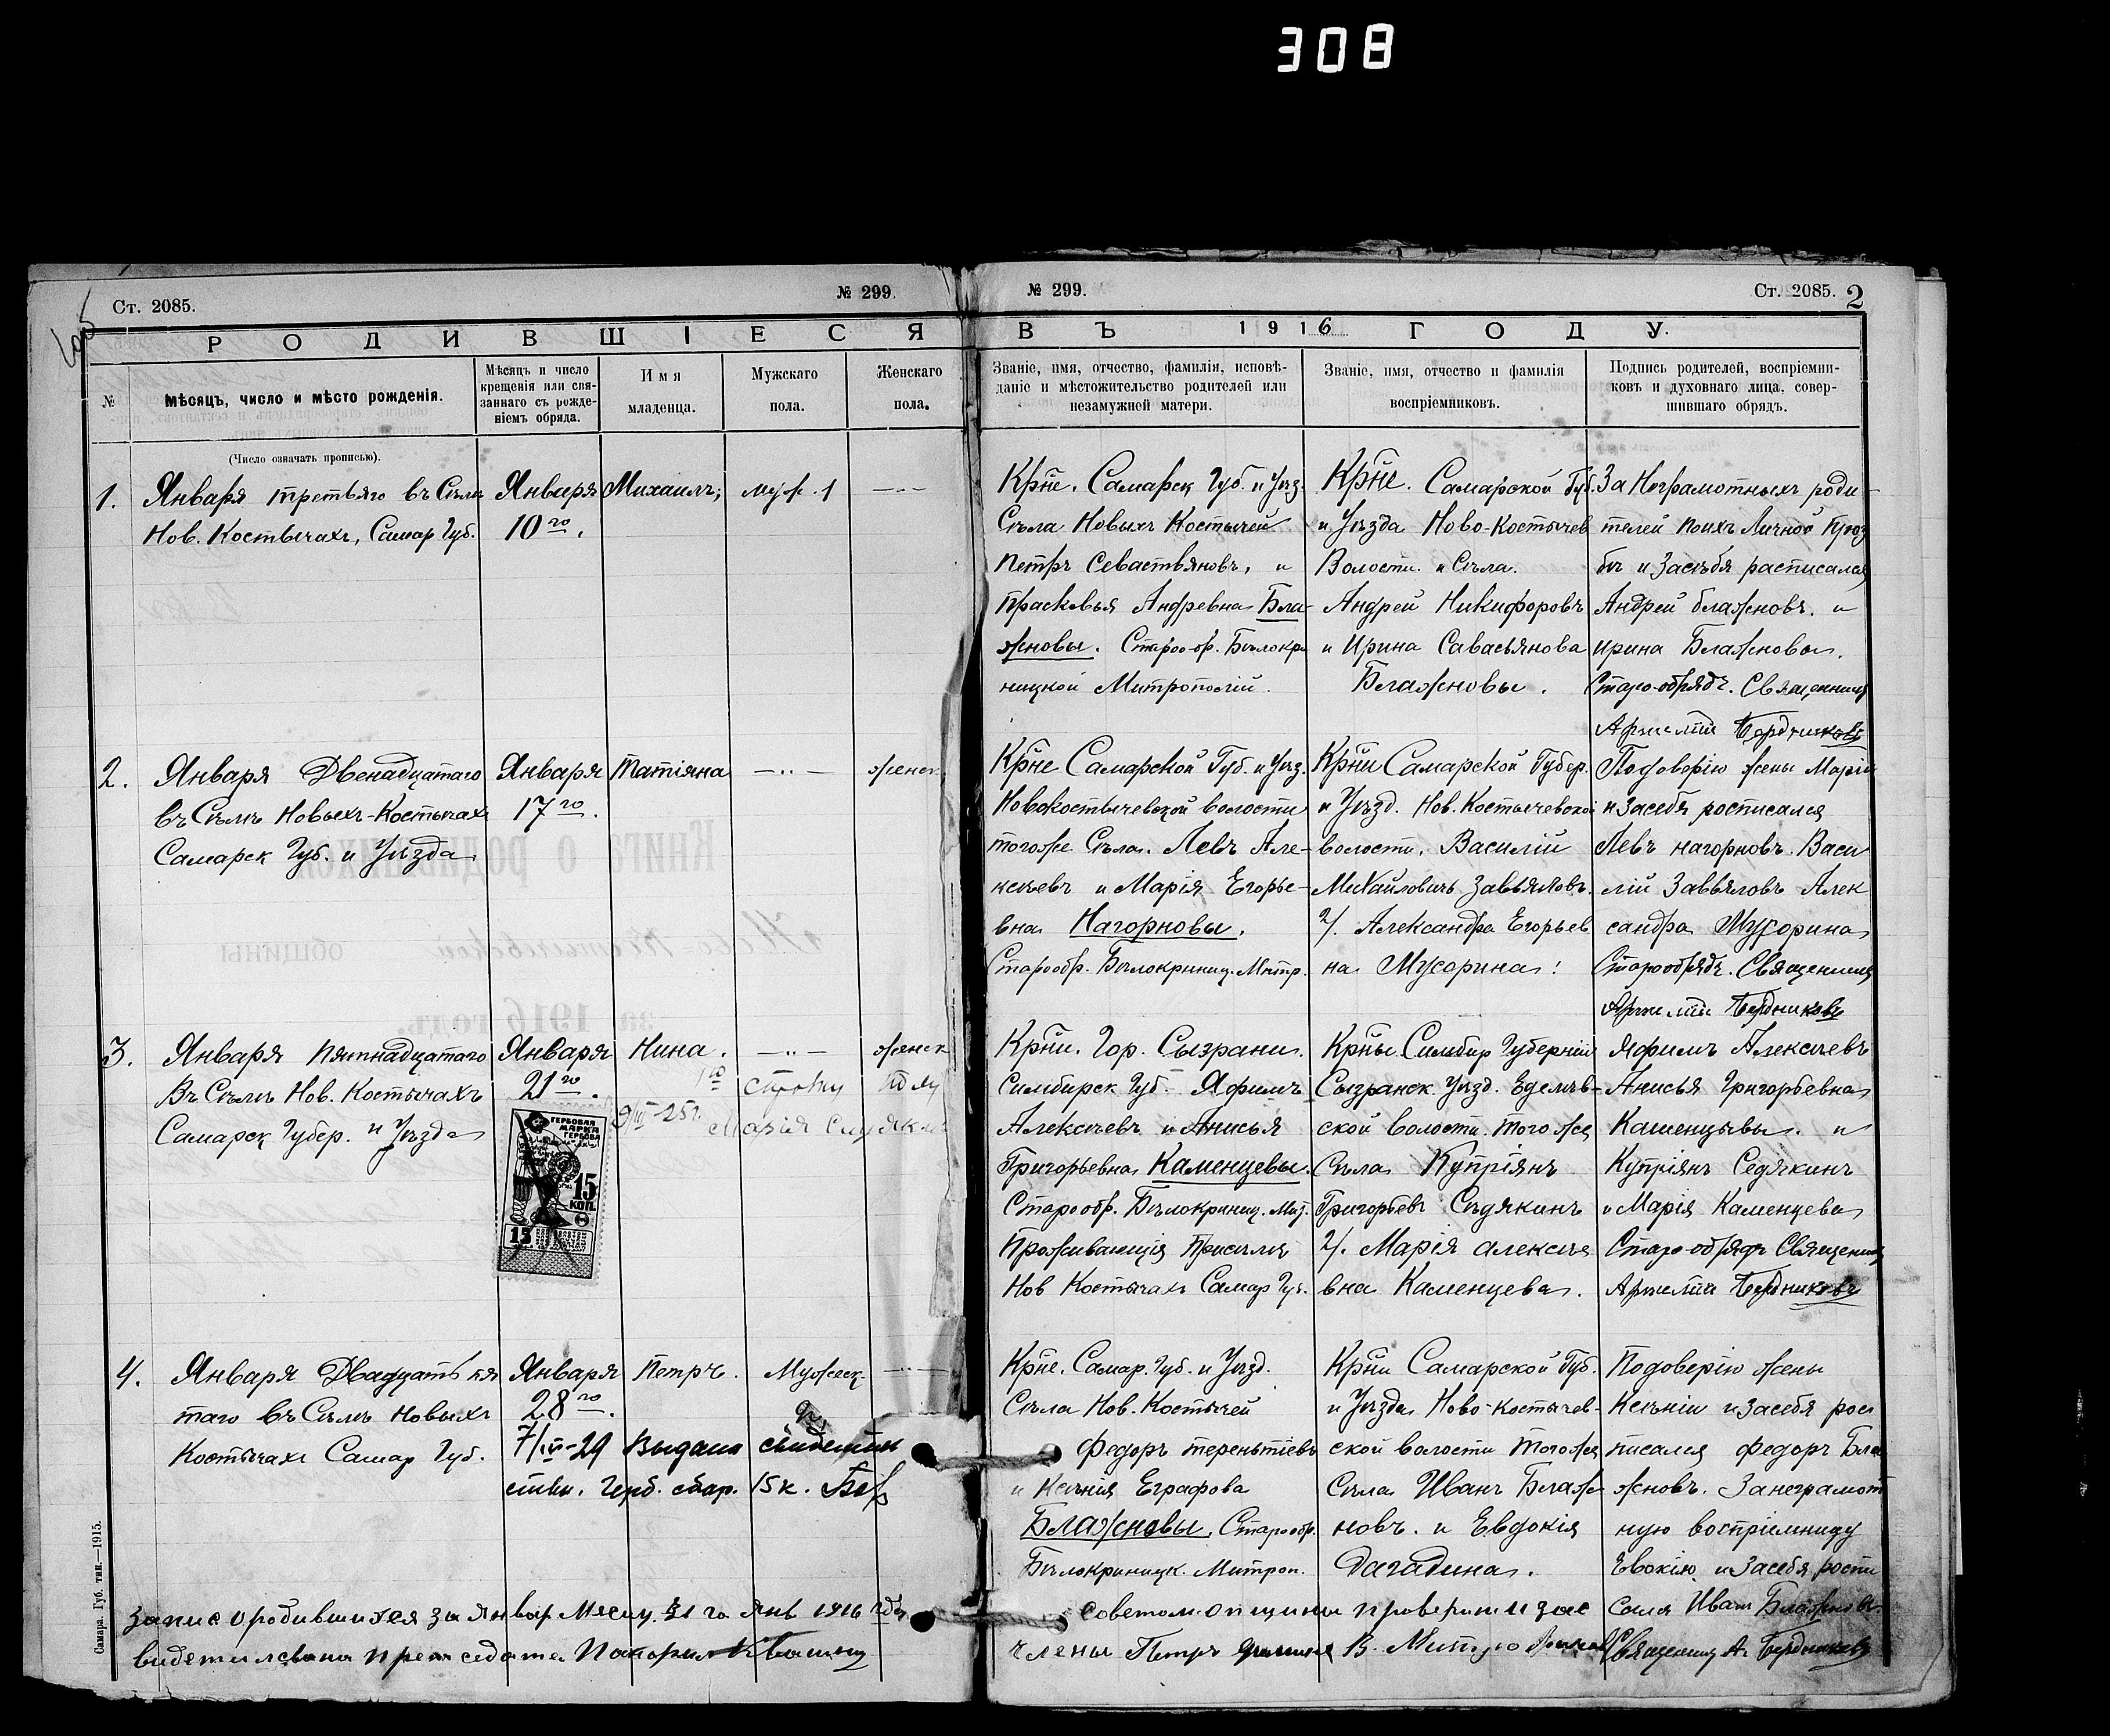 308
Ст. 2085.
№ 299.
№ 299.
Ст. 2085.
2
РОДИВШІЕСЯ
ВЪ 1916 ГОДУ.
№
Мѣсяцъ, число и мѣсто рожденія.
Мѣсяцъ и число
крещенія или свя-
заннаго съ рожде-
ніемъ обряда.
Имя
младенца.
Мужскаго
пола.
Женскаго
пола.
Званіе, имя, отчество, фамилія, исповѣ-
даніе и мѣстожительство родителей или
незамужней матери.
Званіе, имя, отчество и фамилія
воспріемниковъ.
Подпись родителей, воспріемни-
ковъ и духовнаго лица, совер-
шившаго обрядъ.
(Число означать прописью).
1.
Января третьяго въ Сѣлѣ
Нов. Костычахъ, Самар Губ.
Января
10го.
Михаилъ;
муж. 1
Крне. Самарск Губ. и Уѣз.
Сѣла Новыхъ Костычей
Петръ Севастьяновъ, и
Прасковья Андревна Бла-
жновы. Старообр. Бѣлокри
ницкой Митрополій.
Крне. Самарской Губ.
и Уѣзда Ново-Костычев
Волости и Сѣла.
Андрей Никифоровъ
и Ирина Савасьянова
Блажновы.
За Неграмотныхъ роди-
телей поихъ Личной Прοз
бѣ и Засѣбя расписался
Андрей блажновъ. и
ирина Блажнова.
Старо-обрядч. Священникъ
Бердниковъ
2.
Января Двенадцатаго
въ Сѣлѣ Новыхъ-Костычах
Самарск Губ. и Уѣзда
Января
17го.
Татіяна
женск
Крне Самарской Губ. и Уѣз.
Новокостычевской волости
тогоже Сѣла. Левъ Але-
ксѣевъ и Марія Егорье-
вна Нагорновы.
Старообр. Бѣлокриниц. Митр.
Крни Самарской Губер.
и Уѣзд. Нов. Костычевской
волости. Василій
Михайловичъ Завьяловъ.
2/. Александра Егорьев
на Мусорина:
Подоверію жены Маріи
и Засебя росписался
Левъ нагорновъ. Васи
лій Завьяловъ Алек
сандра Мусорина
Старообрядч. Священникъ
Бердниковъ
3.
Января Пятнадцатаго
Въ Сѣлѣ Нов. Костычахъ
Самарск Губер. и Уѣзда
Января
21го.
Нина.
женск
ГЕРБОВАЯ
МАРКА
15
КОП.
15
Крни. Гор. Сызрани.
Симбирск Губ. Яфимъ
Алексѣевъ и Анисья
Григорьевна Каменцевы.
Старообр. Бѣлокриниц. Мит.
Проживающія Присѣлѣ
Нов Костычахъ Самар Гу.
Крны Симбир Губерніи
Сызранск. Уѣзд. Еделев-
ской волости. Того же
Сѣла Купріянъ
Григорьевъ Сѣдякинъ
2/. Марія алексѣе
вна Каменцева.
Яфимъ Алексѣевъ
Анисья Григорьевна
Каменцывы. и
Купріянъ Седякинъ
и Марія Каменцева
Старо-обрядч Священникъ
Бердниковъ
4.
Января Двадцать пя
таго въ Сѣлѣ Новыхъ
Костычахъ Самар Губ.
Января
28го.
Петръ.
Мужеск
7/IV-29 Выдано свидетель
ство. Герб. сбор. 15 к.
Крне. Самар. Губ. и Уѣзд.
Сѣла Нов. Костычей
Федоръ терентіевъ
и Ксенія Еграфова
Блажновы. Старообр.
Бѣлокриницк. Митроп.
Крни Самарской Губ.
и Уѣзда Ново-костычев-
ской волости Тогоже
Сѣла Иванъ Блаж
новъ. и Евдокія
Дагадина.
Подоверію жены
Ксѣніи и засебя рос
писался федоръ Бла
жновъ. Занеграмот
ную воспріемницу
Евокію и Засебя роспи
сался Иванъ Блажновъ
Священникъ А. Бердниковъ
запис о родившихся за Январ Месяц. 31 го янв 1916 года
Советом
члены Петръ
Самара. Губ. тип.—1915.